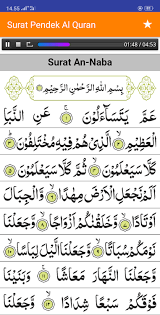 14.55
Surat Pendek Al Quran
01:48 / 04:53
Surat An-Naba
بِسْمِ اللهِ الرَّحْمٰنِ الرَّحِيْمِ
عَمَّ يَتَسَآءَلُوْنَ ١ عَنِ النَّبَإِ
الْعَظِيْمِ ٢ الَّذِيْ هُمْ فِيْهِ مُخْتَلِفُوْنَ ٣
كَلَّا سَيَعْلَمُوْنَ ٤ ثُمَّ كَلَّا سَيَعْلَمُوْنَ ٥
اَلَمْ نَجْعَلِ الْاَرْضَ مِهٰدًا ٦ وَّالْجِبَالَ
اَوْتَادًا ٧ وَّخَلَقْنٰكُمْ اَزْوَاجًا ٨ وَّجَعَلْنَا
نَوْمَكُمْ سُبَاتًا ٩ وَّجَعَلْنَا الَّيْلَ لِبَاسًا ١٠
وَّجَعَلْنَا النَّهَارَ مَعَاشًا ١١ وَّبَنَيْنَا
فَوْقَكُمْ سَبْعًا شِدَادًا ١٢ وَّجَعَلْنَا